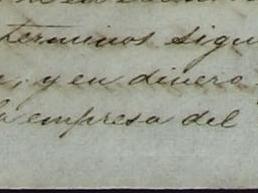 terminos sigu
, y en dinero
la empresa del